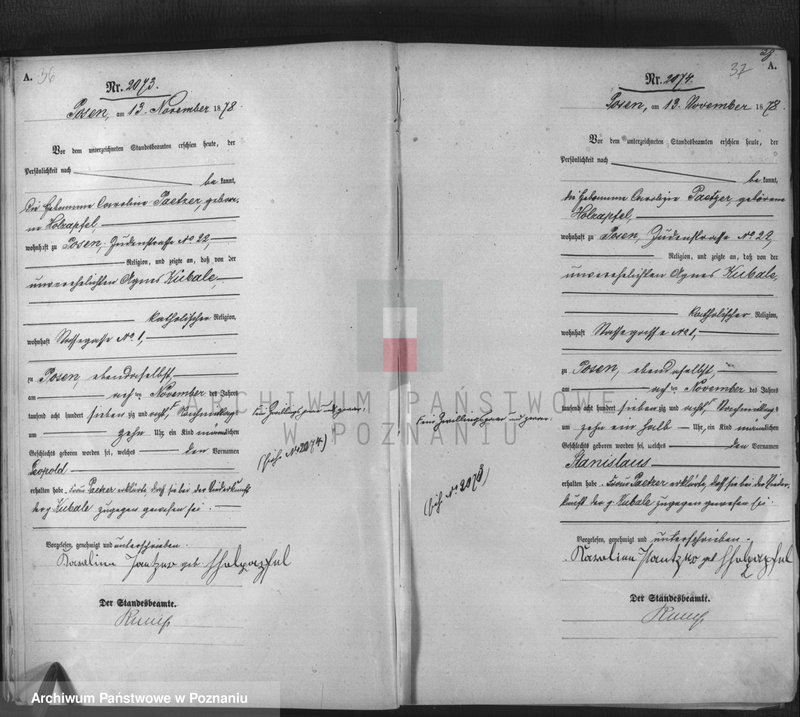 A. 36
Nr. 2073.
Posen, am 13. November 1878
Vor dem unterzeichneten Standesbeamten erschien heute, der
Persönlichkeit nach
bekannt,
die Hebamme Caroline Paetzer, gebore-
ne Holzapfel,
wohnhaft zu Posen, Judenstrasse No 22,
Religion, und zeigte an, daß von der
unverehelichten Agnes Kubale,
katholischer Religion,
wohnhaft No 1,
zu Posen, ebendaselbst
am November des Jahres
tausend acht hundert siebenzig und acht, Vormittags
um zehn Uhr, ein Kind männlichen
Geschlechts geboren worden sei, welches den Vornamen
Leopold
erhalten habe. Frau Paetzer erklärte, daß sie bei der Niederkunft
der p. Kubale zugegen gewesen sei.
Vorgelesen, genehmigt und unterschrieben.
Karolina geb Hholzapfel
Der Standesbeamte.
(sieh. No 2074)
28
37 A.
Nr. 2074.
Posen, am 13. November 1878
Vor dem unterzeichneten Standesbeamten erschien heute, der
Persönlichkeit nach
bekannt,
die Hebamme Caroline Paetzer, geborene
Holzapfel,
wohnhaft zu Posen, Judenstrasse No 22,
Religion, und zeigte an, daß von der
unverehelichten Agnes Kubale,
katholischer Religion,
wohnhaft No 1,
zu Posen, ebendaselbst,
am November des Jahres
tausend acht hundert siebenzig und acht, Vormittags
um zehn ein halb Uhr, ein Kind männlichen
Geschlechts geboren worden sei, welches den Vornamen
Stanislaus
erhalten habe. Frau Paetzer erklärte, daß sie bei der Nieder-
kunft der p. Kubale zugegen gewesen sei.
Vorgelesen, genehmigt und unterschrieben.
Karolina geb Hholzapfel
Der Standesbeamte.
(sieh No 2073)
ARCHIWUM PAŃSTWOWE
W POZNANIU
Archiwum Państwowe w Poznaniu